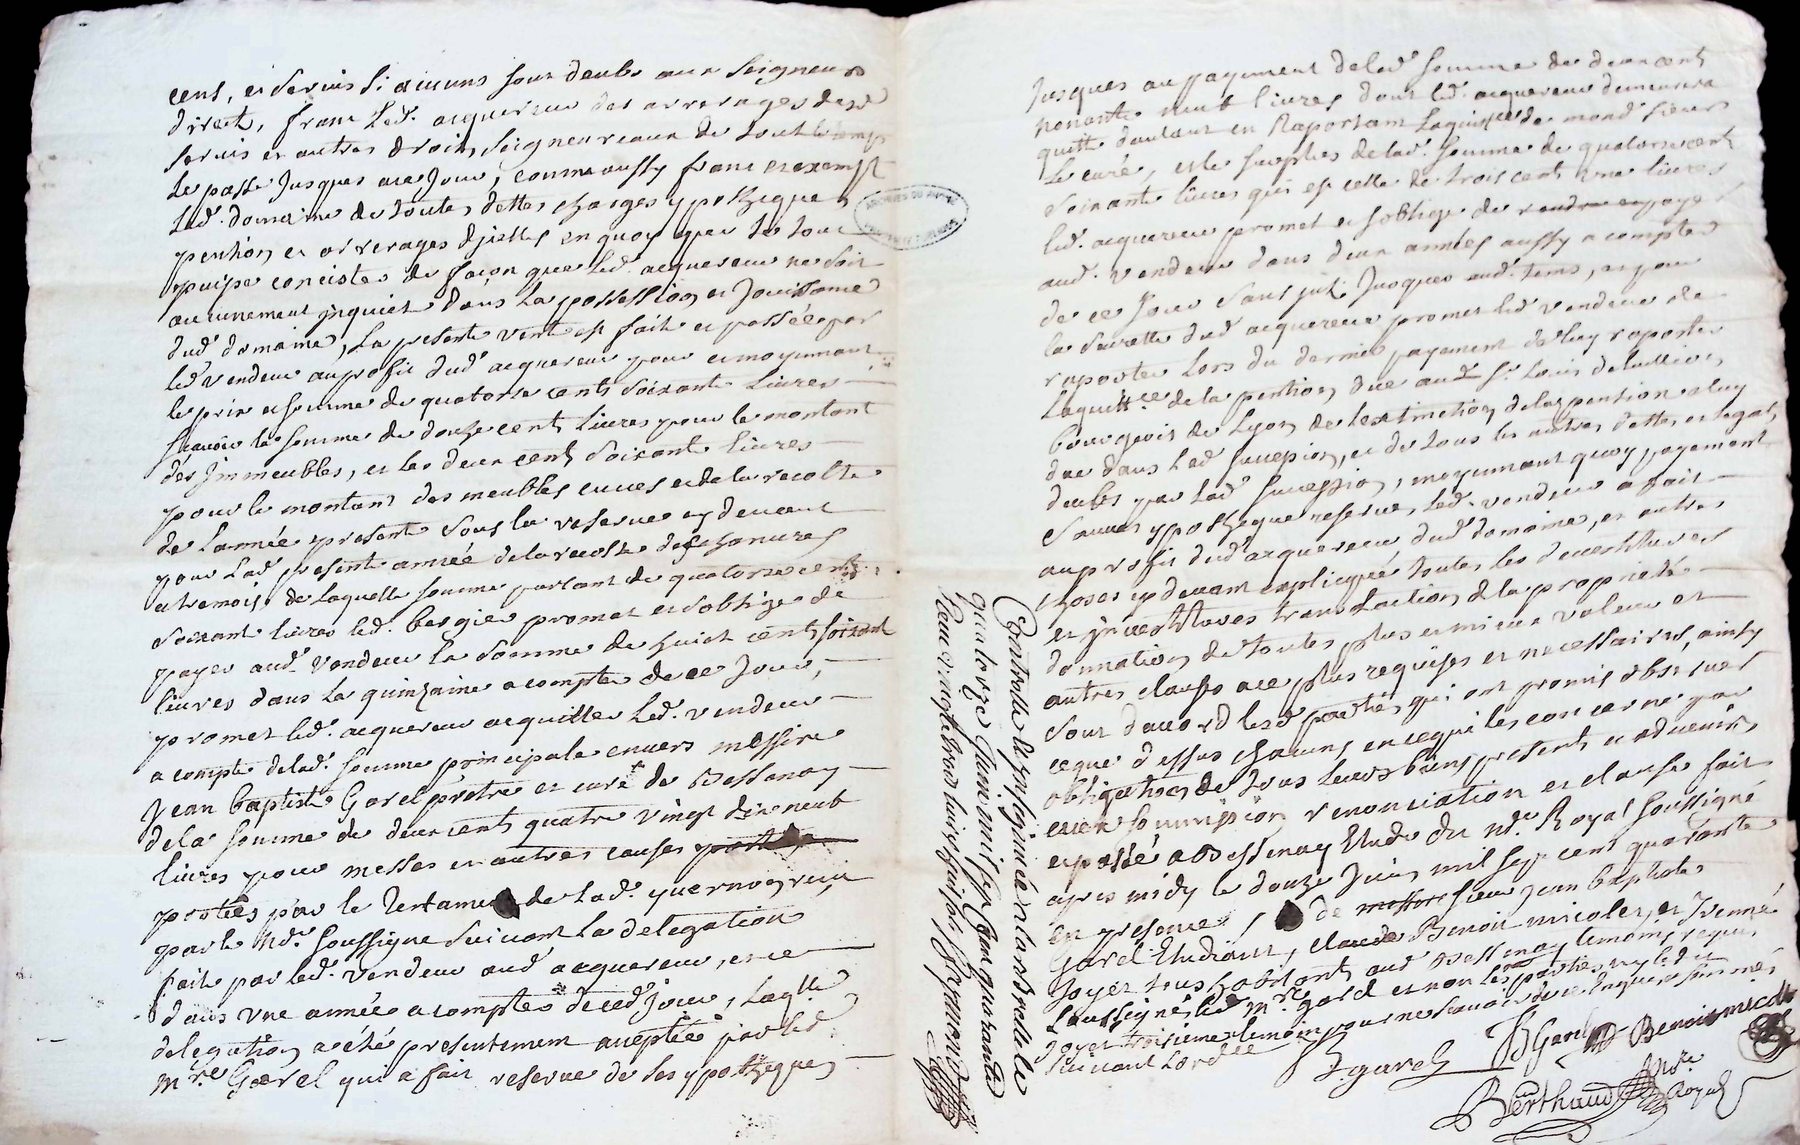 cens, et servis si aucuns sont deubs aux seigneurs
direct, franc led. acquereur des arrerages desd
servis et autres droits seigneuriaux de tout le temps
le passé jusques a ce jour, comme aussy franc et exempt
led. domaine de toutes dettes charges ypotheques
pention et arrerages d'jcelles en quoy que le tout
puisse concister de façon que led. acquereur ne soit
aucunement jnquieté dans la possession et jouissance
dud. domaine, la presente vente est faite et passée par
led. vendeur au profit dud. acquereur pour et moyennant
le prix et somme de quatorze cents soixante livres
sçavoir la somme de douze cent livres pour le montant
des jmmeubles, et les deux cent soixante livres
pour le montant des meubles cuves et de la recolte
de l'année presente sous la reserve cy devant
pour lad. presente année de la recolte des chanvres
et tremois, de laquelle somme partant de quatorze cents
soixante livres led. bergier promet et s'oblige de
payer aud. vendeur la somme de huict cents soixante
livres dans la quinzaine a compter de ce jour,
promet led. acquereur acquitter led. vendeur
a compte de lad. somme principale envers messire
jean baptiste Garel prêtre et curé de Bessenay
de la somme de deux cents quatre vingt dixneuf
livres pour messes et autres causes
portées par le testament de lad. receu
par le Nd.re soussigné suivant la delegation
faite par led. vendeur aud. acquereur, et ce
dans une année a compter de ced. jour, laq.lle
delegation a été presentement acceptée par led.
m.re Garel qui a fait reserve de ses ypotheques
jusques au payement de lad. somme de deux cent
nonante neuf livres dont led. acquereur demeurera
quitte d'autant en raportant la quittance de mond. sieur
le curé, et le surplus de lad. somme de quatorze cent
soixante livres qui est celle de trois cent une livres
led. acquereur promet et s'oblige de payer
aud. vendeur dans deux années aussy a compter
de ce jour sans jusques aud. tems, et pour
la seurette dud. acquereur promet led. vendeur de
raporter lors du dernier payement de luy raporter
la quitt.ce de la pention due aud. s.r Louis
bourgeois de Lyon de l'extinction de la pension a luy
due dans lad. succession, et de tous les autres dettes et legats
deubs par lad. succession, moyennant quoy payement
sauves ypotheque reservé, led. vendeur a fait
au profit dud. acquereur dud. domaine, et autres
choses cy devant expliquée toutes les devestitures
et jnvestitures translation de la proprieté
donnation de toutes plus et mieux value et
autres clauses a ce plus requises et necessaires, ainsy
sont d'accord lesd. parties qui ont promis observer
ce que dessus chacuns en ce qui les concerne par
obligation de tous leurs biens presents et advenirs
avec soumission renonciation et clause fait
et passé a Bessenay Etude du Nd.re Royal soussigné
apres midy le douze juin mil sept cent quarante
en presence, de sieur jean baptiste
Garel Etudiant, Claude Benoit micolet, et Étienne
joyet tous habitants aud. Bessenay temoins requis
soussignés led. m.re garel et non les parties ny led.
joyet troisieme temoin pour ne sçavoir de ce enquis et sommés
suivant l'ordce
J garel JB Garel Benoit micolet
Berthaud Nd.re Royal
Controllé le et insinué a l'arbrelle le
quatorze juin mil sept cent quarante